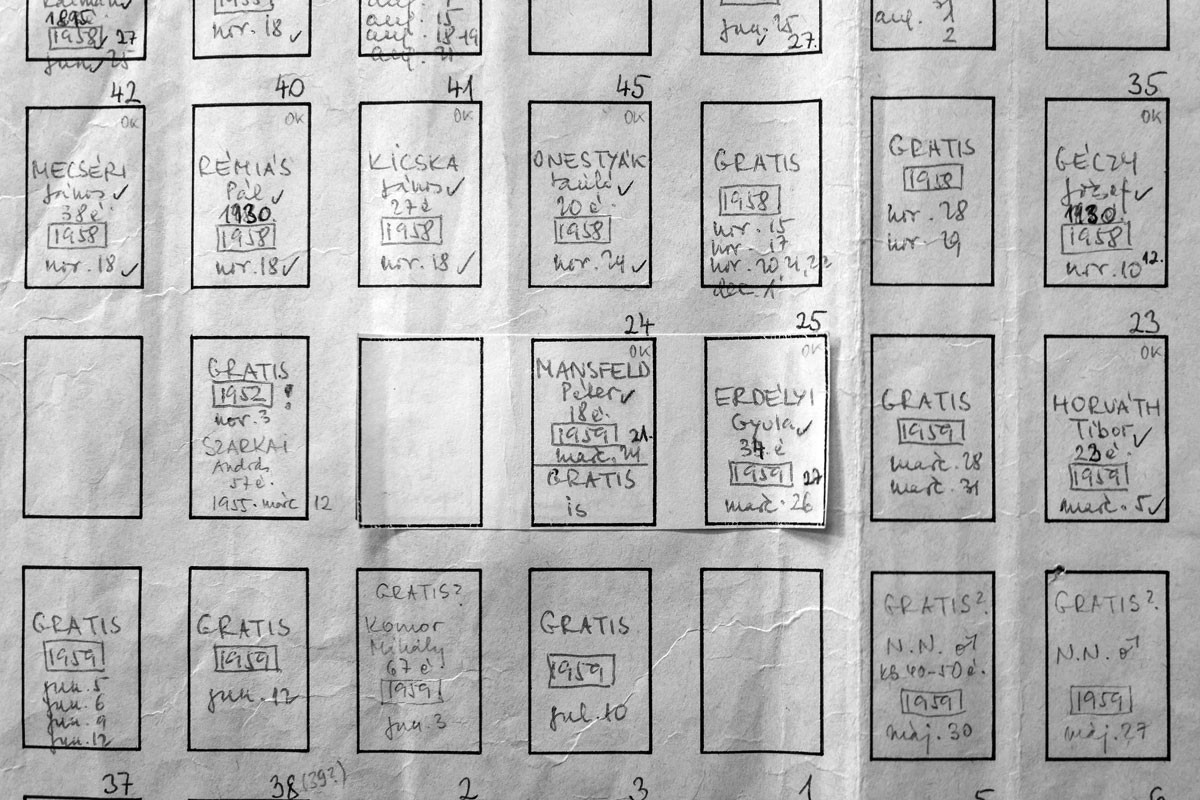 1895
1958 27
jun. 25
1955
nov. 18 ✓
aug. 15
aug. 18-19
aug. 21
jun. 25
27.
aug. 31
1
2
42
OK
MECSÉRI
János ✓
38 é.
1958
nov. 18 ✓
40
OK
RÉMIÁS
Pál ✓
1930.
1958
nov. 18 ✓
41
OK
KICSKA
János ✓
27 é
1958
nov. 18 ✓
45
OK
ONESTYÁK
László ✓
20 é
1958
nov. 24 ✓
GRATIS
1958
nov. 15
nov. 17
nov. 20, 21, 22
dec. 1
GRATIS
1958
nov. 28
nov. 29
35
OK
GÉCZY
József ✓
1930.
1958
nov. 10 12.
GRATIS
1952 !
nov. 3
SZARKAI
András
57 é.
1955. márc 12
24
OK
MANSFELD
Péter ✓
18 é.
1959 21.
márc. 24
GRATIS
is
25
OK
ERDÉLYI
Gyula ✓
37. é
1959 27
márc. 26
GRATIS
1959
márc. 28
márc. 31
23
OK
HORVÁTH
Tibor ✓
23 é.
1959
márc. 5 ✓
GRATIS
1959
jun. 5
jun. 6
jun. 9
jun. 12
GRATIS
1959
jun. 12
GRATIS?
Komor
Mihály
67 é
1959
jun. 3
GRATIS
1959
jul. 10
GRATIS?
N.N. ♂
kb. 40-50 é.
1959
máj. 30
GRATIS?
N.N. ♂
1959
máj. 27
37
38 (39?)
2
3
1
5
6